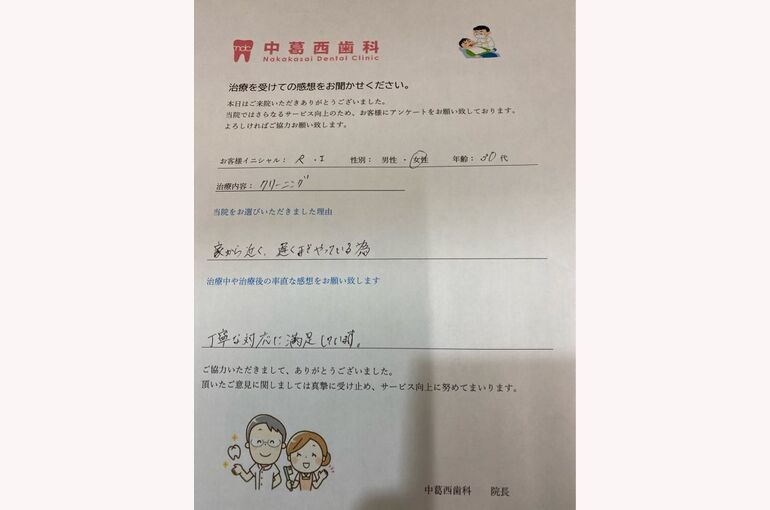 ndc 中葛西歯科
Nakakasai Dental Clinic
治療を受けての感想をお聞かせください。
本日はご来院いただきありがとうございました。
当院ではさらなるサービス向上のため、お客様にアンケートをお願い致しております。
よろしければご協力お願い致します。
お客様イニシャル： R・I 性別： 男性 ・ 女性 年齢： 30 代
治療内容： クリーニング
当院をお選びいただきました理由
家から近く、遅くまでやっている為
治療中や治療後の率直な感想をお願い致します
丁寧な対応に満足しています。
ご協力いただきまして、ありがとうございました。
頂いたご意見に関しましては真摯に受け止め、サービス向上に努めてまいります。
中葛西歯科 院長